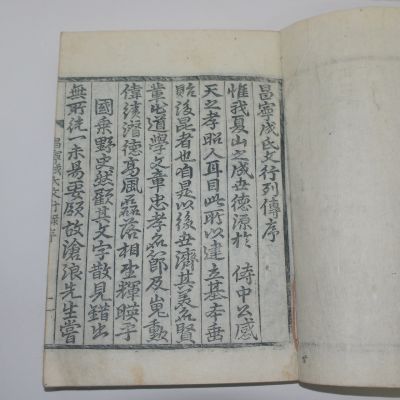 昌寧成氏文行列傳序
惟我夏山之成世德源於 侍中公感
天之孝昭人耳目此所以建立基本垂
貽後昆者也自是以後世濟其美名賢
輩出道學文章忠孝名節及嵬勳
偉績潛德高風磊落相望輝暎乎
國乘野史然顧其文字散見錯出
無所統一未易要領故滄浪先生嘗
昌寧成氏文行